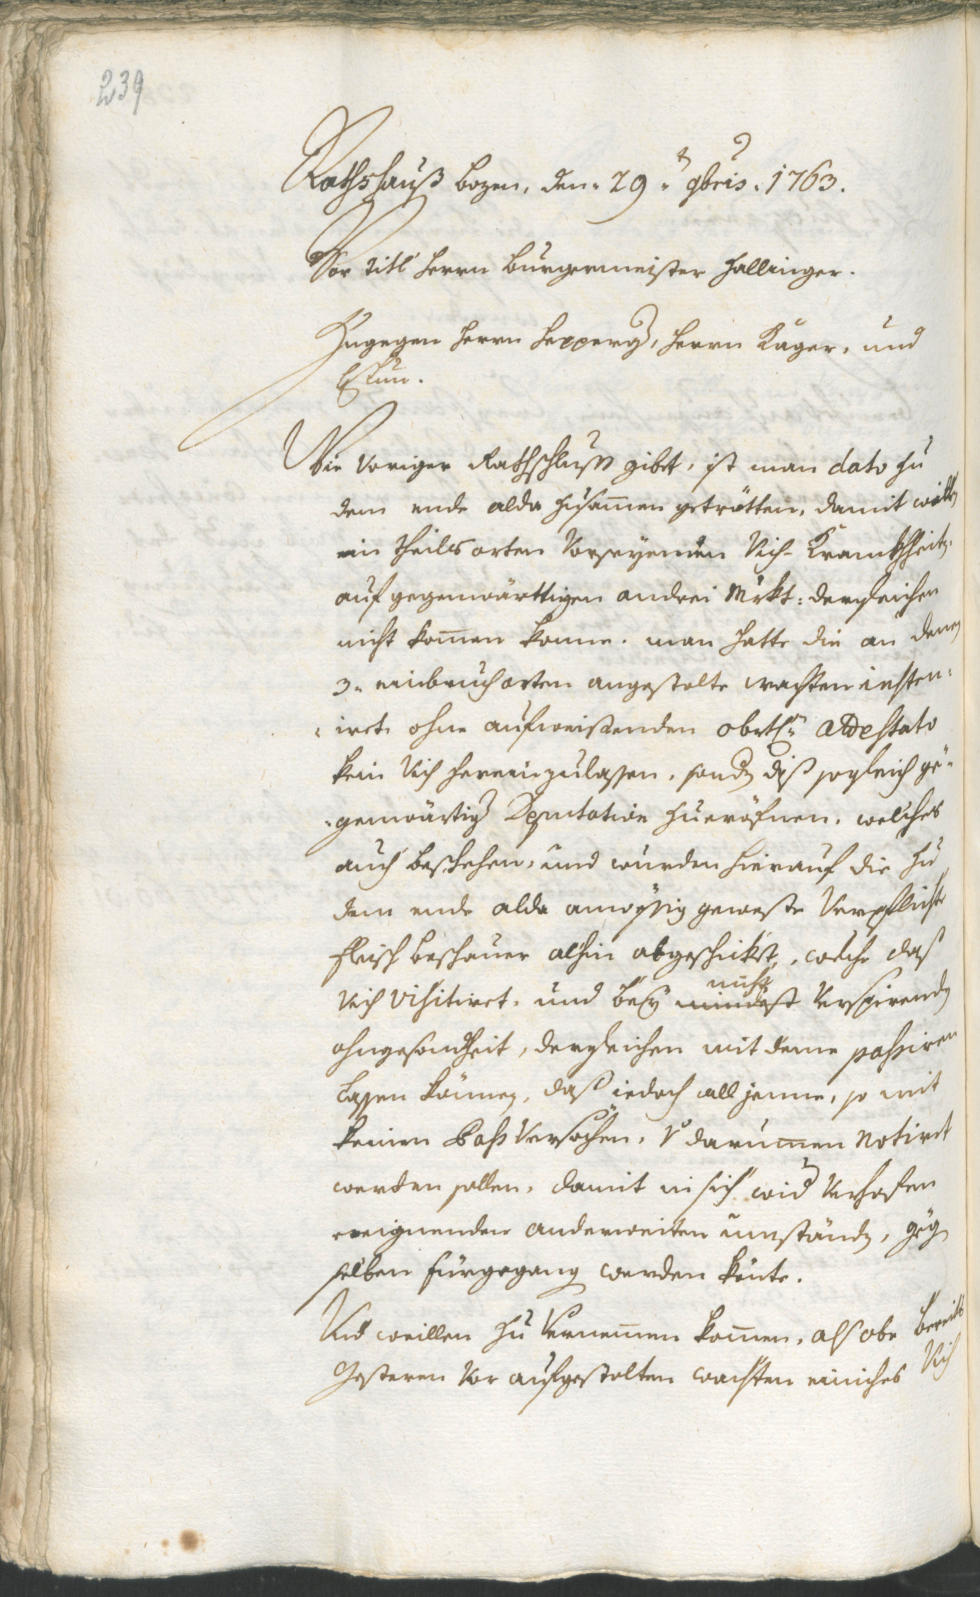 239
Rathshauß Bozen, den 29ten 9bris 1763.
Vor Titl Herrn Burgermeister Hallinger.
Zugegen Herrn Hepperg, Herrn Kager, und
Wie voriger Rathschluss gibt, ist man dato zu
dem ende alda zusammen getrötten, damit
ein theils orten Vorseyenden Vich-Krankheit
auf gegenwärttigen andrei Mrkt: dergleichen
nicht kommen konne. man hatte die an denen
3. einbruch orten angestelte wachten insten-
irt ohne aufweissenden obrtl: Attestato
kein Vich hereinzulassen, sondern diß sogleich ge-
genwärtiger Deputation zueröfnen, welches
auch beschehen, und wurden hierauf die zu
dem ende alda anwesig geweste Verpflichte
fleisch beschauer alhin abgeschikt, welche daß
Vich visitirt, und bey nicht verspirender
ohngesondheit, dergleichen mit deme passiren
lassen können, daß iedoch all jenne, so mit
keinen Pass versöhen, darumen Notirt
werden sollen, damit in sich wider verhofen
ereignenden anderweiten umständen, gegen
selben fürgegangen werden könte.
Und weillen zu vernemmen kommen, als obe bereits
gesteren vor aufgestelten wachten einiches Vich